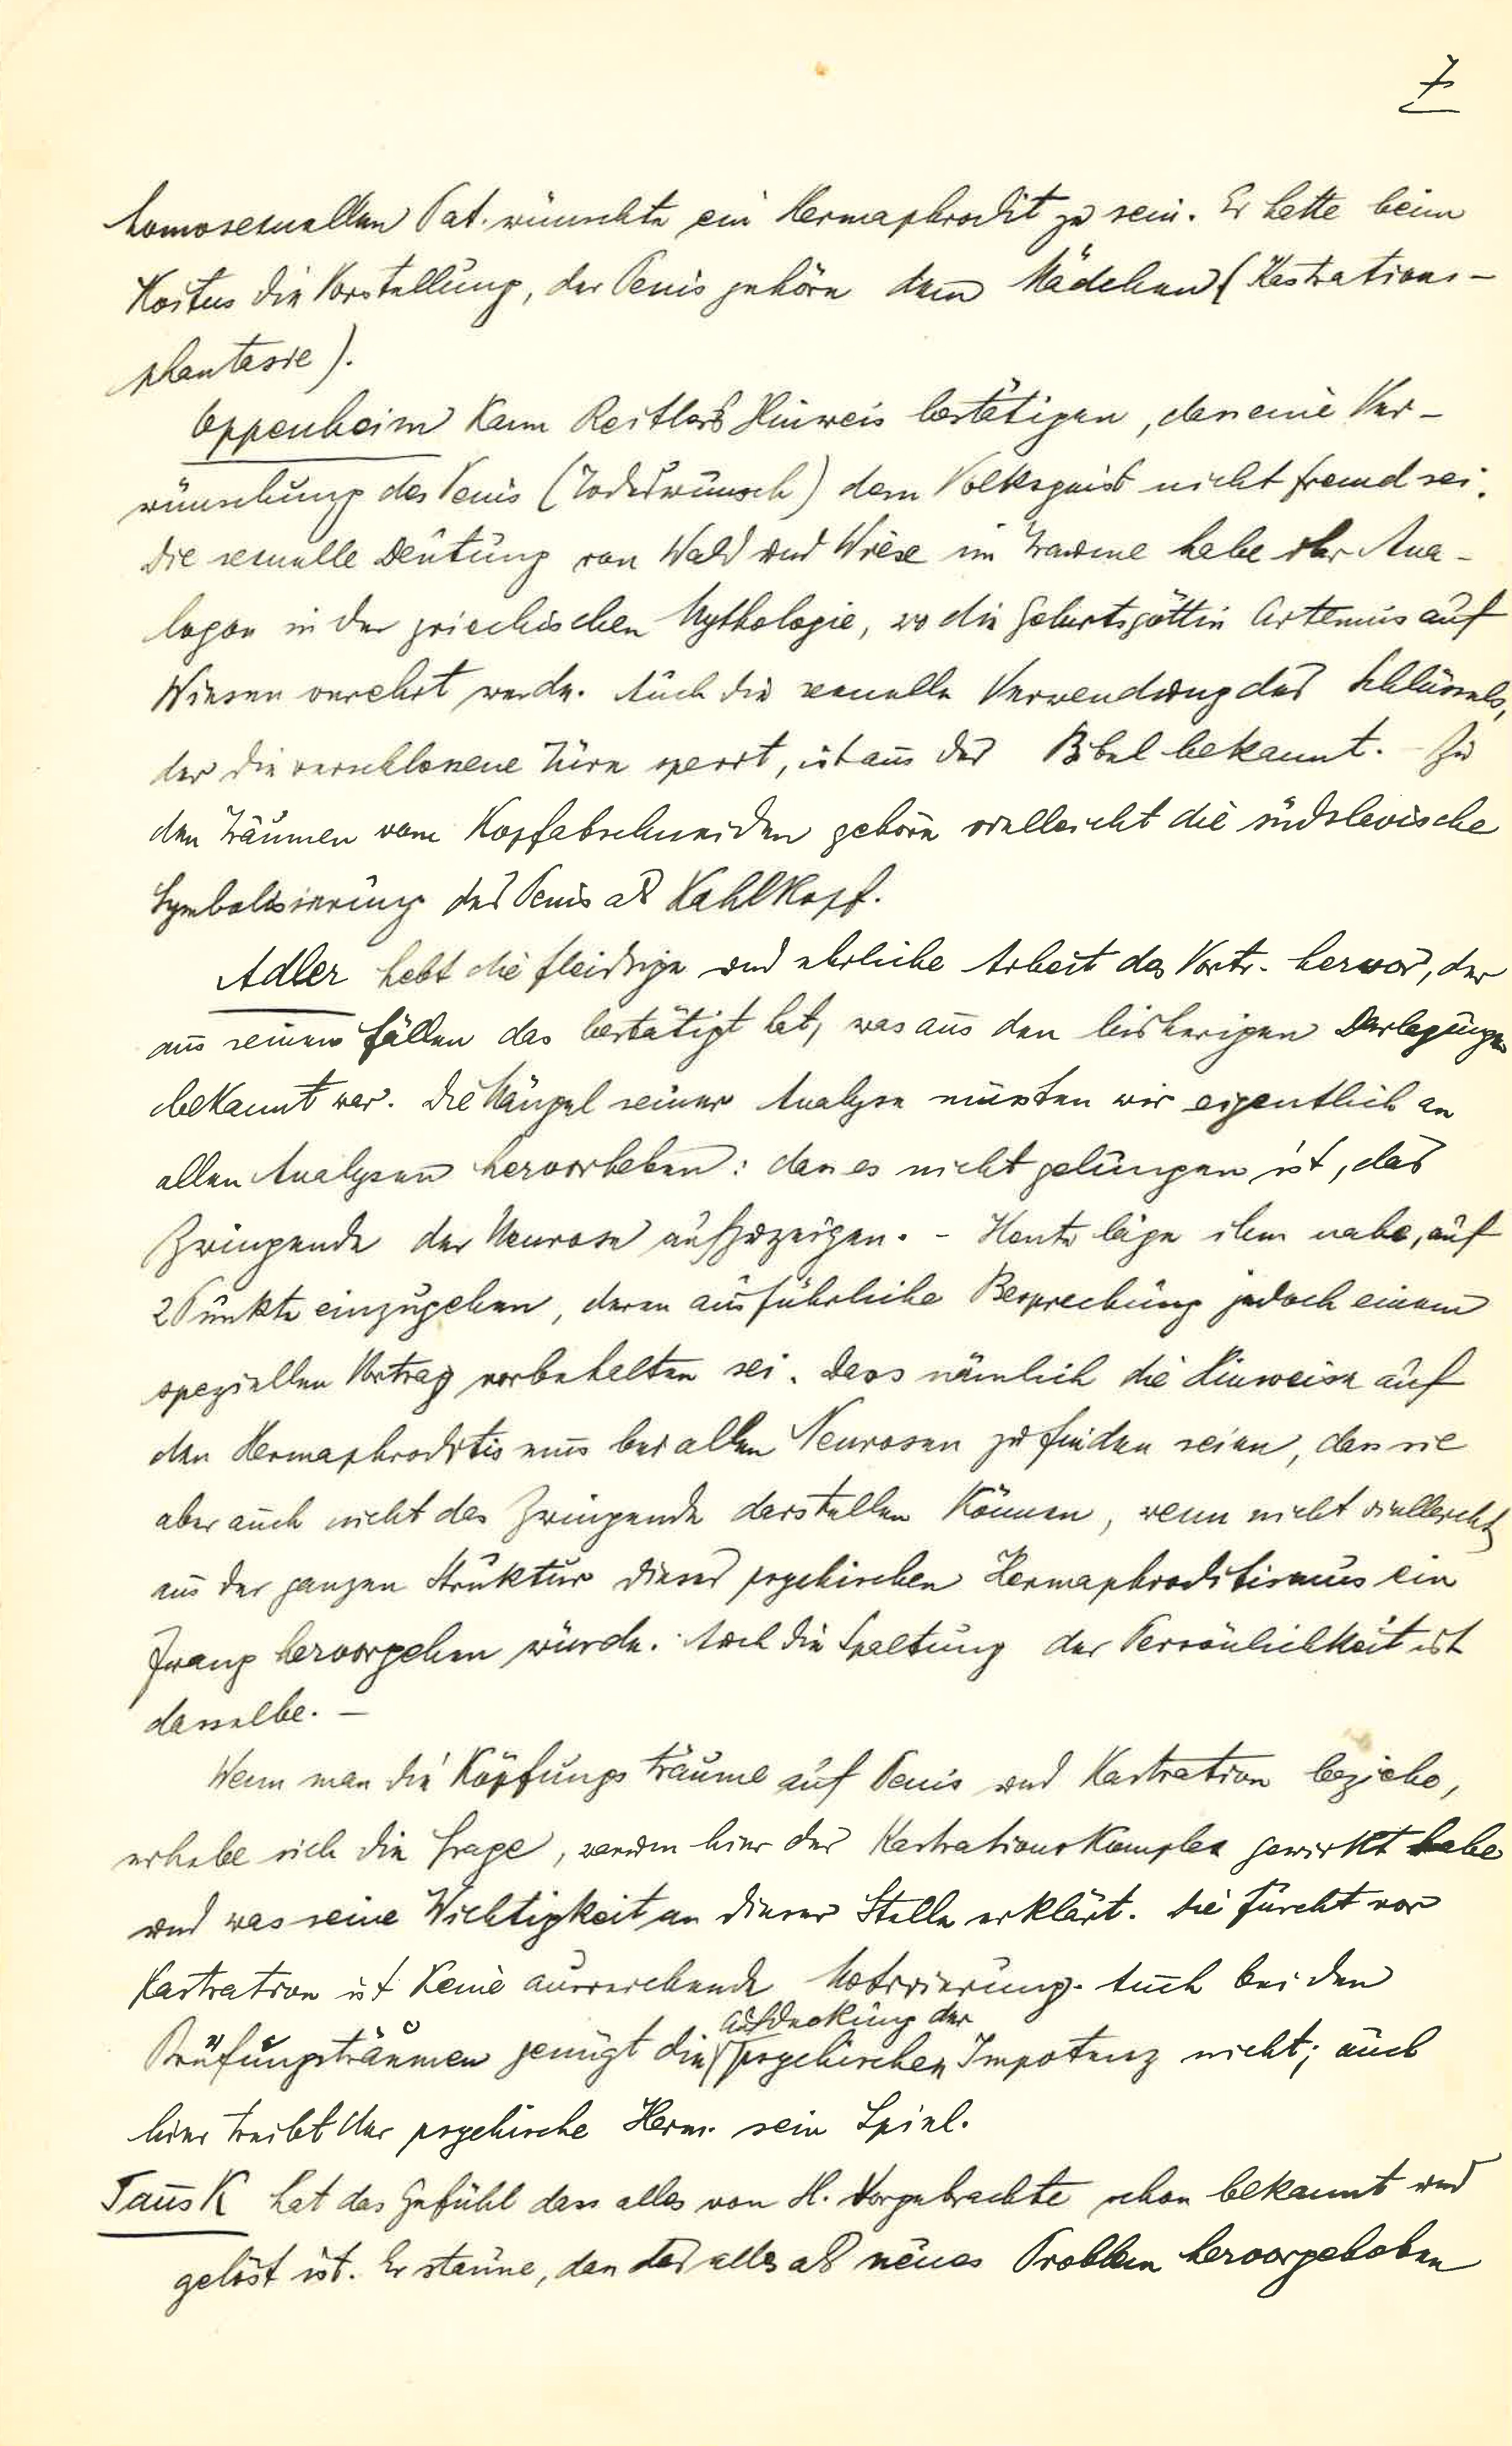 7
homosexuellen Pat. wünschte ein Hermaphrodit zu sein. Er hatte beim
Koitus die Vorstellung, der Penis gehöre dem Mädchen (Kastrations-
phantasie).
Oppenheim kann Reitlers Hinweis bestätigen, dass eine Ver-
wünschung des Penis (Todeswunsch) dem Volksgeist nicht fremd sei.
Die sexuelle Deutung von Wald und Wiese im Traume habe ihr Ana-
logon in der griechischen Mythologie, wo die Geburtsgöttin Artemis auf
Wiesen verehrt werde. Auch die sexuelle Verwendung des Schlüssels,
der die verschlossene Türe sperrt, ist aus der Bibel bekannt. – Zu
den Träumen vom Kopfabschneiden gehöre vielleicht die südslavische
Symbolisierung des Penis als Kahlkopf.
Adler hebt die fleissige und ehrliche Arbeit des Vortr. hervor, der
aus seinen Fällen das bestätigt hat, was aus den bisherigen Darlegungen
bekannt war. Die Mängel seiner Analyse müssten wir eigentlich an
allen Analysen hervorheben: dass es nicht gelungen ist, das
Zwingende der Neurose aufzuzeigen. – Heute läge ihm nahe, auf
2 Punkte einzugehen, deren ausführliche Besprechung jedoch einem
speziellen Vortrag vorbehalten sei. Dass nämlich die Hinweise auf
den Hermaphroditismus bei allen Neurosen zu finden seien, dass sie
aber auch nicht das Zwingende darstellen können, wenn nicht vielleicht
aus der ganzen Struktur dieses psychischen Hermaphroditismus ein
Zwang hervorgehen würde. Auch die Spaltung der Persönlichkeit ist
dasselbe. –
Wenn man die Köpfungsträume auf Penis und Kastration beziehe,
erhebe sich die Frage, warum hier der Kastrationskomplex gewirkt habe
und was seine Wichtigkeit an dieser Stelle erklärt. Die Furcht vor
Kastration ist keine ausreichende Motivierung. Auch bei den
Aufdeckung der
Prüfungsträumen genügt die psychischen Impotenz nicht; auch
hier treibt der psychische Herm. sein Spiel.
Tausk hat das Gefühl dass alles von H. Vorgebrachte schon bekannt und
gelöst ist. Er staune, dass das alles als neues Problem hervorgehoben